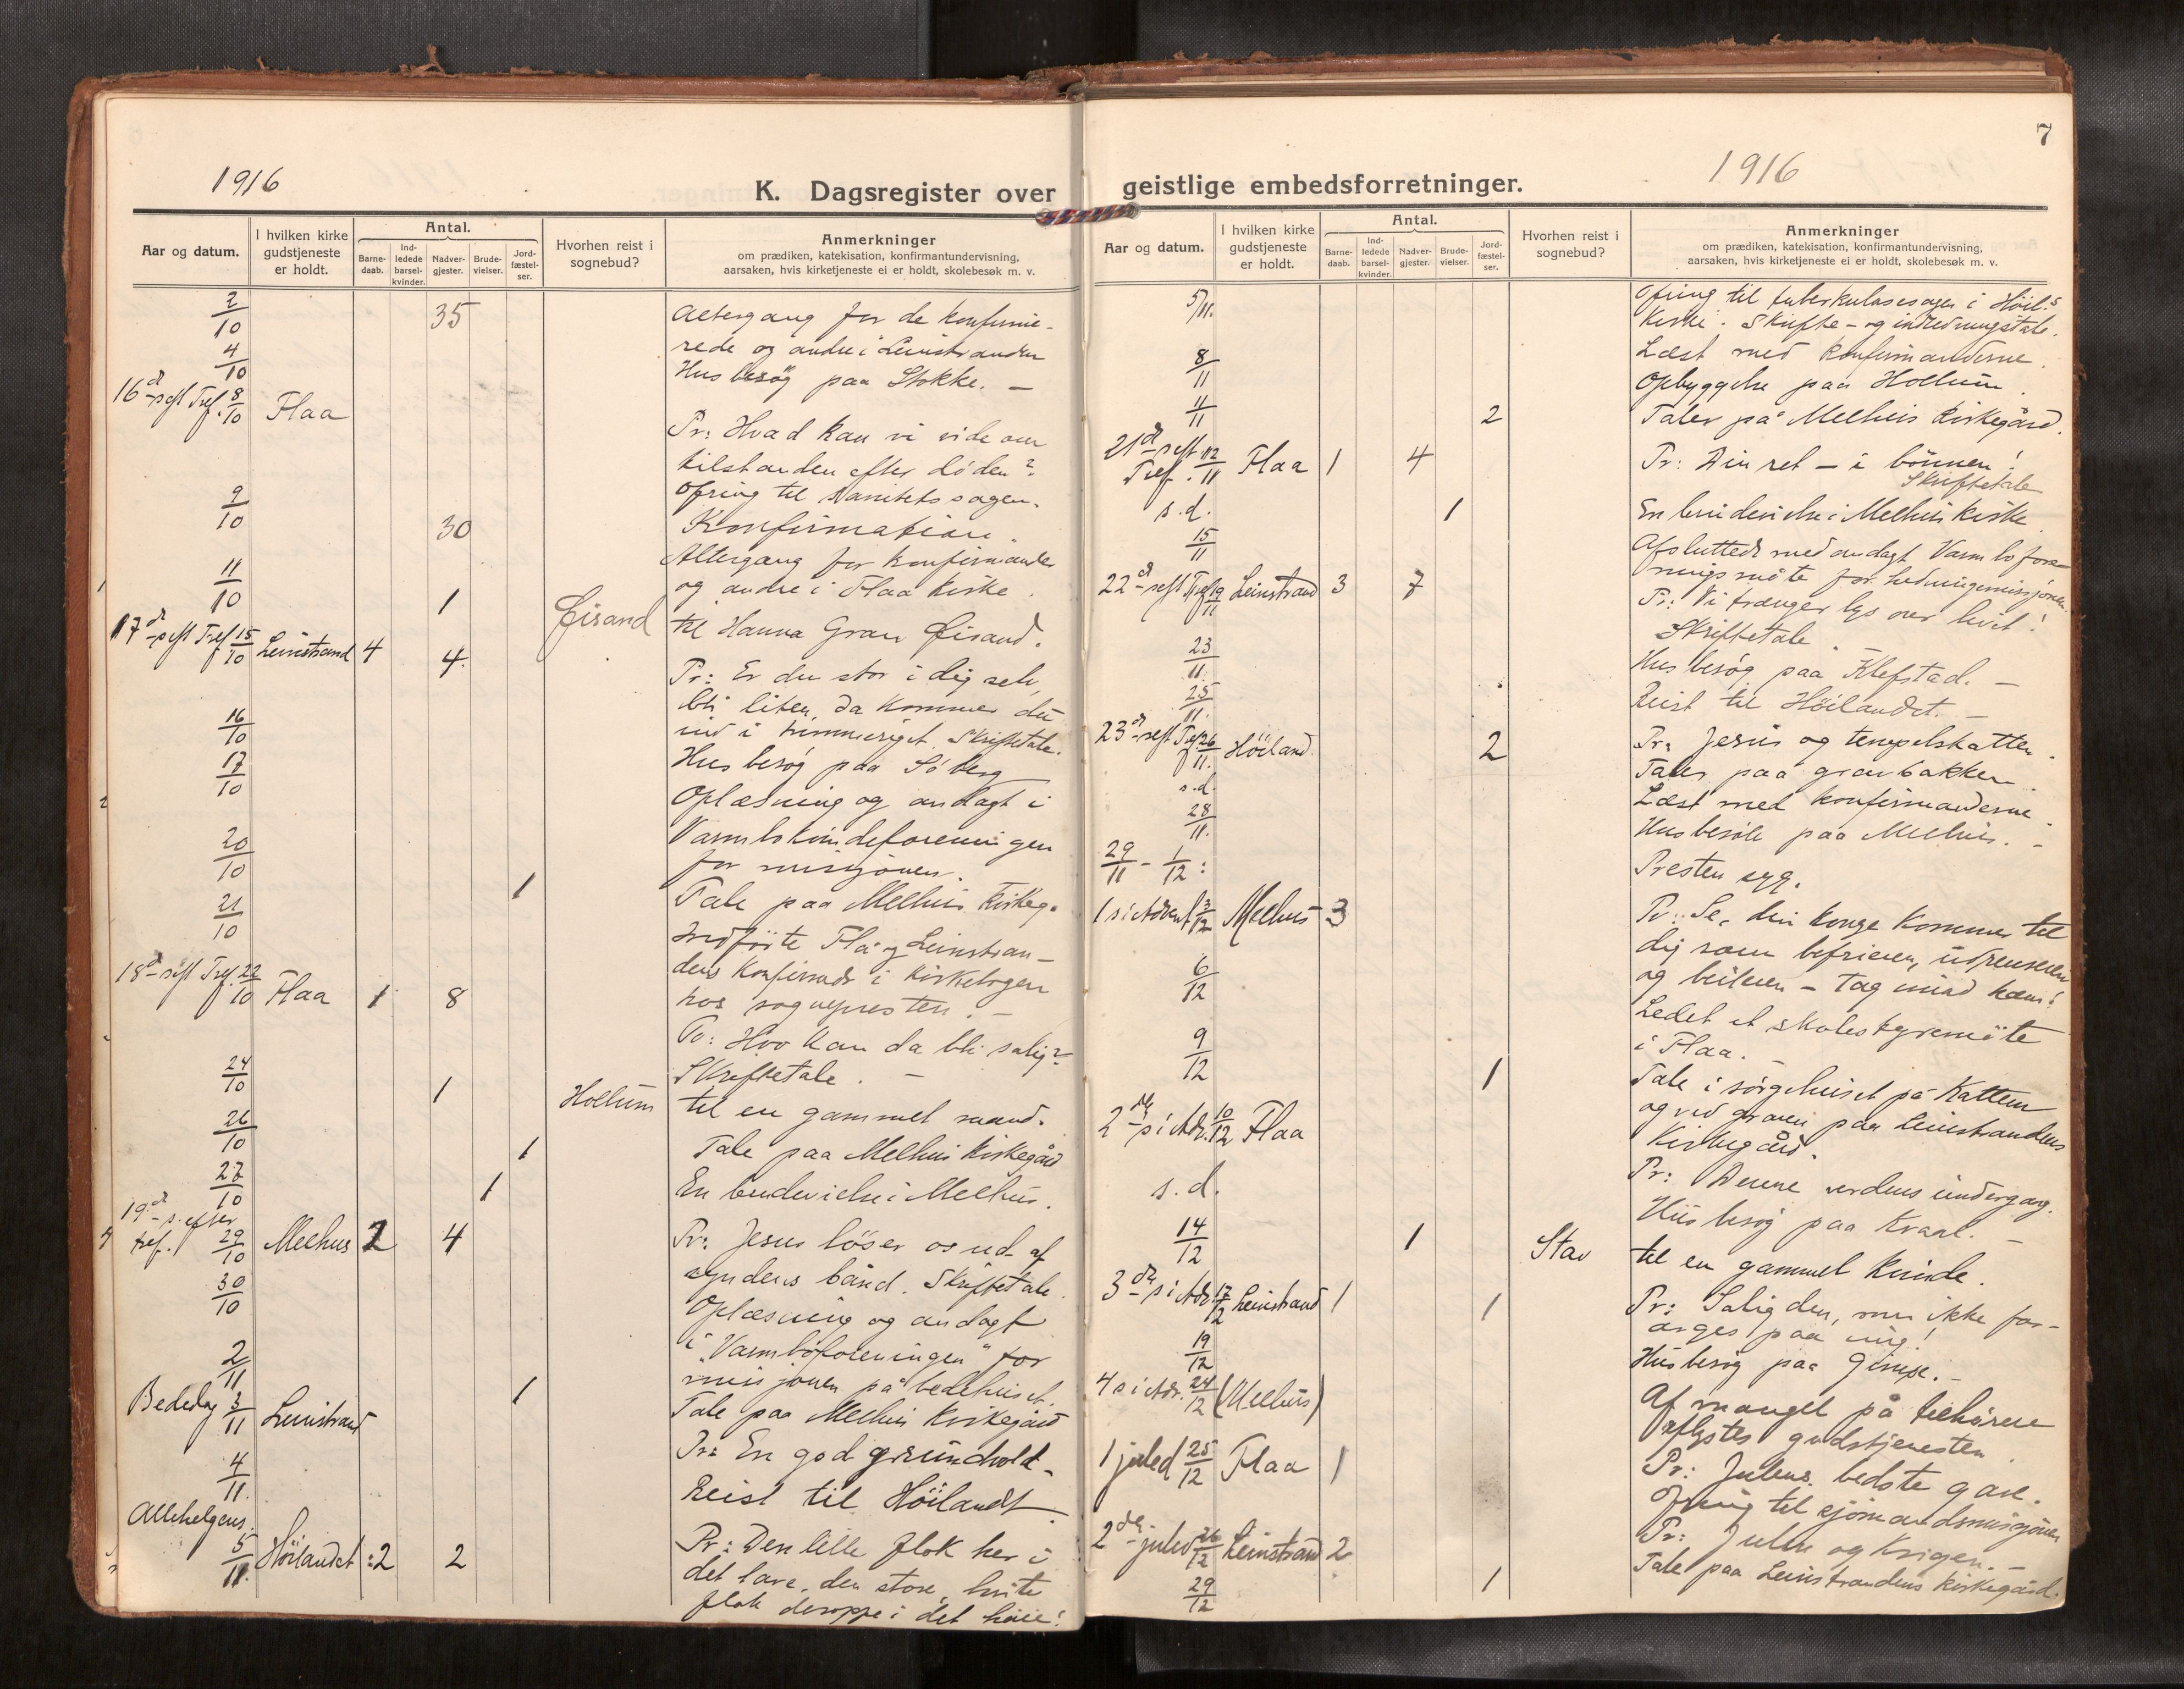 7
1916
K. Dagsregister over geistlige embedsforretninger.
1916
Aar og datum.
I hvilken kirke gudstjeneste er holdt.
Antal.
Barne-daab.
Ind-ledede barsel-kvinder.
Nadver-gjester.
Brude-vielser.
Jord-fæstel-ser.
Hvorhen reist i sognebud?
Anmerkninger
om prædiken, katekisation, konfirmantundervisning,
aarsaken, hvis kirketjeneste ei er holdt, skolebesøk m. v.
2/10 35 Altergang for de konfirme-
rede og andre i Leinstranden
4/10 Husbesøg paa Stokke. —
16de s eft Tref. 8/10 Flaa Pr: Hvad kan vi vide om
tilstanden efter døden?
Ofring til sanitetssagen.
Konfirmation.
9/10 30 Altergang for konfirmander
og andre i Flaa kirke.
11/10 1 Øisand til Hanna Gran Øisand.
17de s eft Tref 15/10 Leinstrand 4 4 Pr: Er du stor i dig selv,
bli liten, da kommer du
ind i himmeriget. Skriftetale.
16/10 Husbesøg paa Söberg
17/10 Oplæsning og andagt i
Varmbokvindeforeningen
for misjonen.
20/10 1 Tale paa Melhus kirkeg.
21/10 Indførte Flå og Leinstran-
dens konfirmader i kirkebogen
hos sognepresten. —
18de s eft Tref. 22/10 Flaa 1 8 Pr: Hvo kan da bli salig?
Skriftetale. —
24/10 1 Hollum til en gammel mand.
26/10 1 Tale paa Melhus kirkegård
27/10 1 En brudevielse i Melhus.
19de s. efter
tref. 29/10 Melhus 2 4 Pr: Jesus løser os ud af
syndens bånd. Skriftetale.
30/10 Oplæsning og andagt
i "Varmboforeningen" for
misjonen på bedehuset.
2/11 1 Tale paa Melhus kirkegård
Bededag 3/11 Leinstrand Pr: En god grundvold.
4/11. Reist til Höilandt.
Allehelgens.
5/11. Höilandet :2 2 Pr: Den lille flok her i
det lave, den store, hvite
flok deroppe i det höie!
Aar og datum.
I hvilken kirke gudstjeneste er holdt.
Antal.
Barne-daab.
Ind-ledede barsel-kvinder.
Nadver-gjester.
Brude-vielser.
Jord-fæstel-ser.
Hvorhen reist i sognebud?
Anmerkninger
om prædiken, katekisation, konfirmantundervisning,
aarsaken, hvis kirketjeneste ei er holdt, skolebesøk m. v.
5/11. Ofring til tuberkulosesagen i Höil.s
kirke. Skrifte- og indledningstale.
Læst med konfirmanderne.
8/11 Opbyggelse paa Hollum
11/11 2 Taler på Melhus kirkegård.
21de s eft 12/11
Tref. Flaa 1 4 Pr: Din ret — i bönnen!
Skriftetale
s.d. 1 En brudevielse i Melhus kirke.
15/11 Afsluttede med andagt Varmbofore-
ningsmöte for hedningemisjonen.
22de s eft Tref 19/11 Leinstrand 3 7 Pr: Vi trænger lys over livet!
Skriftetale.
23/11. Husbesøg paa Klefstad. —
25/11. Reist til Höilandet. —
23de s eft Tref 26/11. Höiland. 2 Pr: Jesus og tempelskatten.
Taler paa gravbakken.
s.d. Læst med konfirmanderne.
28/11. Husbesøk paa Melhus. —
29/11 - 1/12: Presten syg.
1 s i Advent 3/12 Melhus 3 Pr: Se, din konge kommer til
dig som befrieren, udrenseren
og beileren — tag imod ham!
6/12 Ledet et skolestyremöte
i Flaa. —
9/12 1 Tale i sörgehuset på Kattem
og ved graven paa Leinstrandens
kirkegård.
2den s i Adv. 10/12 Flaa Pr: Denne verdens undergang.
s.d. Husbesøg paa Kvaal. —
14/12 1 Stav til en gammel kvinde.
3die s i Adv. 17/12 Leinstrand 1 1 Pr: Salig den, som ikke for-
arges paa mig!
19/12 Husbesøg paa Gimse. —
4 s i Adv. 24/12 (Melhus) Af mangel på tilhörere
aflystes gudstjenesten
1 juled 25/12 Flaa 1 Pr: Julens bedste gave.
Ofring til sjömandsmisjonen
2den juled 26/12 Leinstrand 2 Pr: Julen og krigen. —
29/12 1 Tale paa Leinstrandens kirkegård.